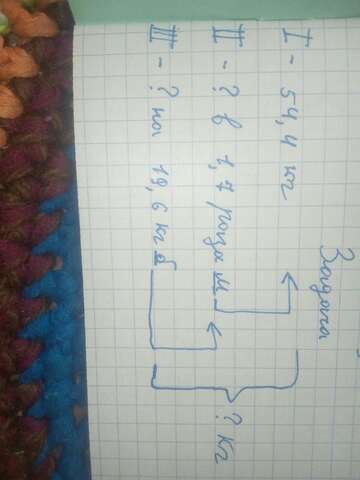 Задача
I - 54,4 кг
II - ? в 1,7 раза м
III - ? на 19,6 кг б
? кг